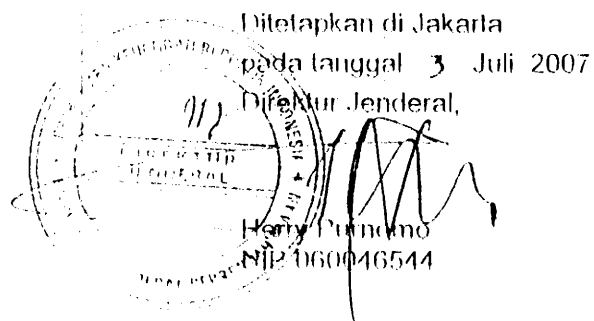 Ditetapkan di Jakarta
pada tanggal 3 Juli 2007
Direktur Jenderal,
DIREKTUR
JENDERAL
Herry Purnomo
NIP 060046544